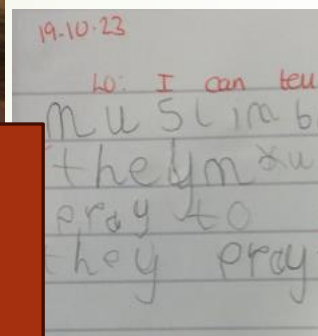 19.10.23
LO: I can
muslim b
they m
pray to
they pray